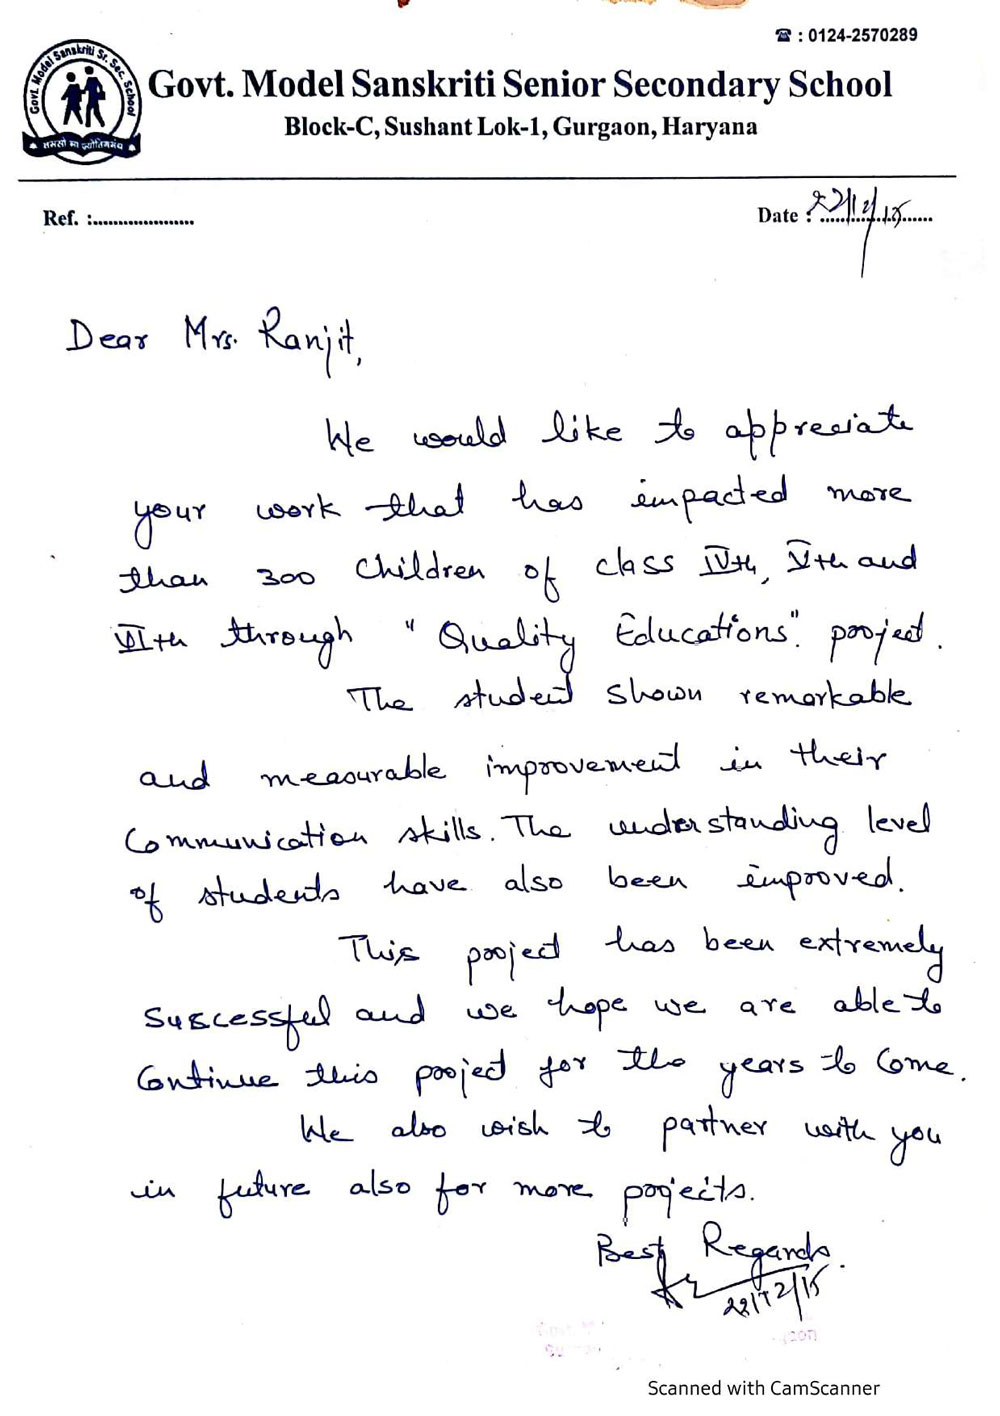 ☎ : 0124-2570289
Govt. Model Sanskriti Sr. Sec. School
तमसो मा ज्योतिर्गमय
Govt. Model Sanskriti Senior Secondary School
Block-C, Sushant Lok-1, Gurgaon, Haryana
Ref. :.....................
Date : 22/12/15
Dear Mrs. Ranjit,
We would like to appreciate
your work that has impacted more
than 300 children of class IVth, Vth and
VIth through "Quality Educations". project.
The student shown remarkable
and measurable improvement in their
Communication skills. The understanding level
of students have also been improved.
This project has been extremely
successful and we hope we are able to
Continue this project for the years to Come.
We also wish to partner with you
in future also for more projects.
Best Regards.
22/12/15
Scanned with CamScanner